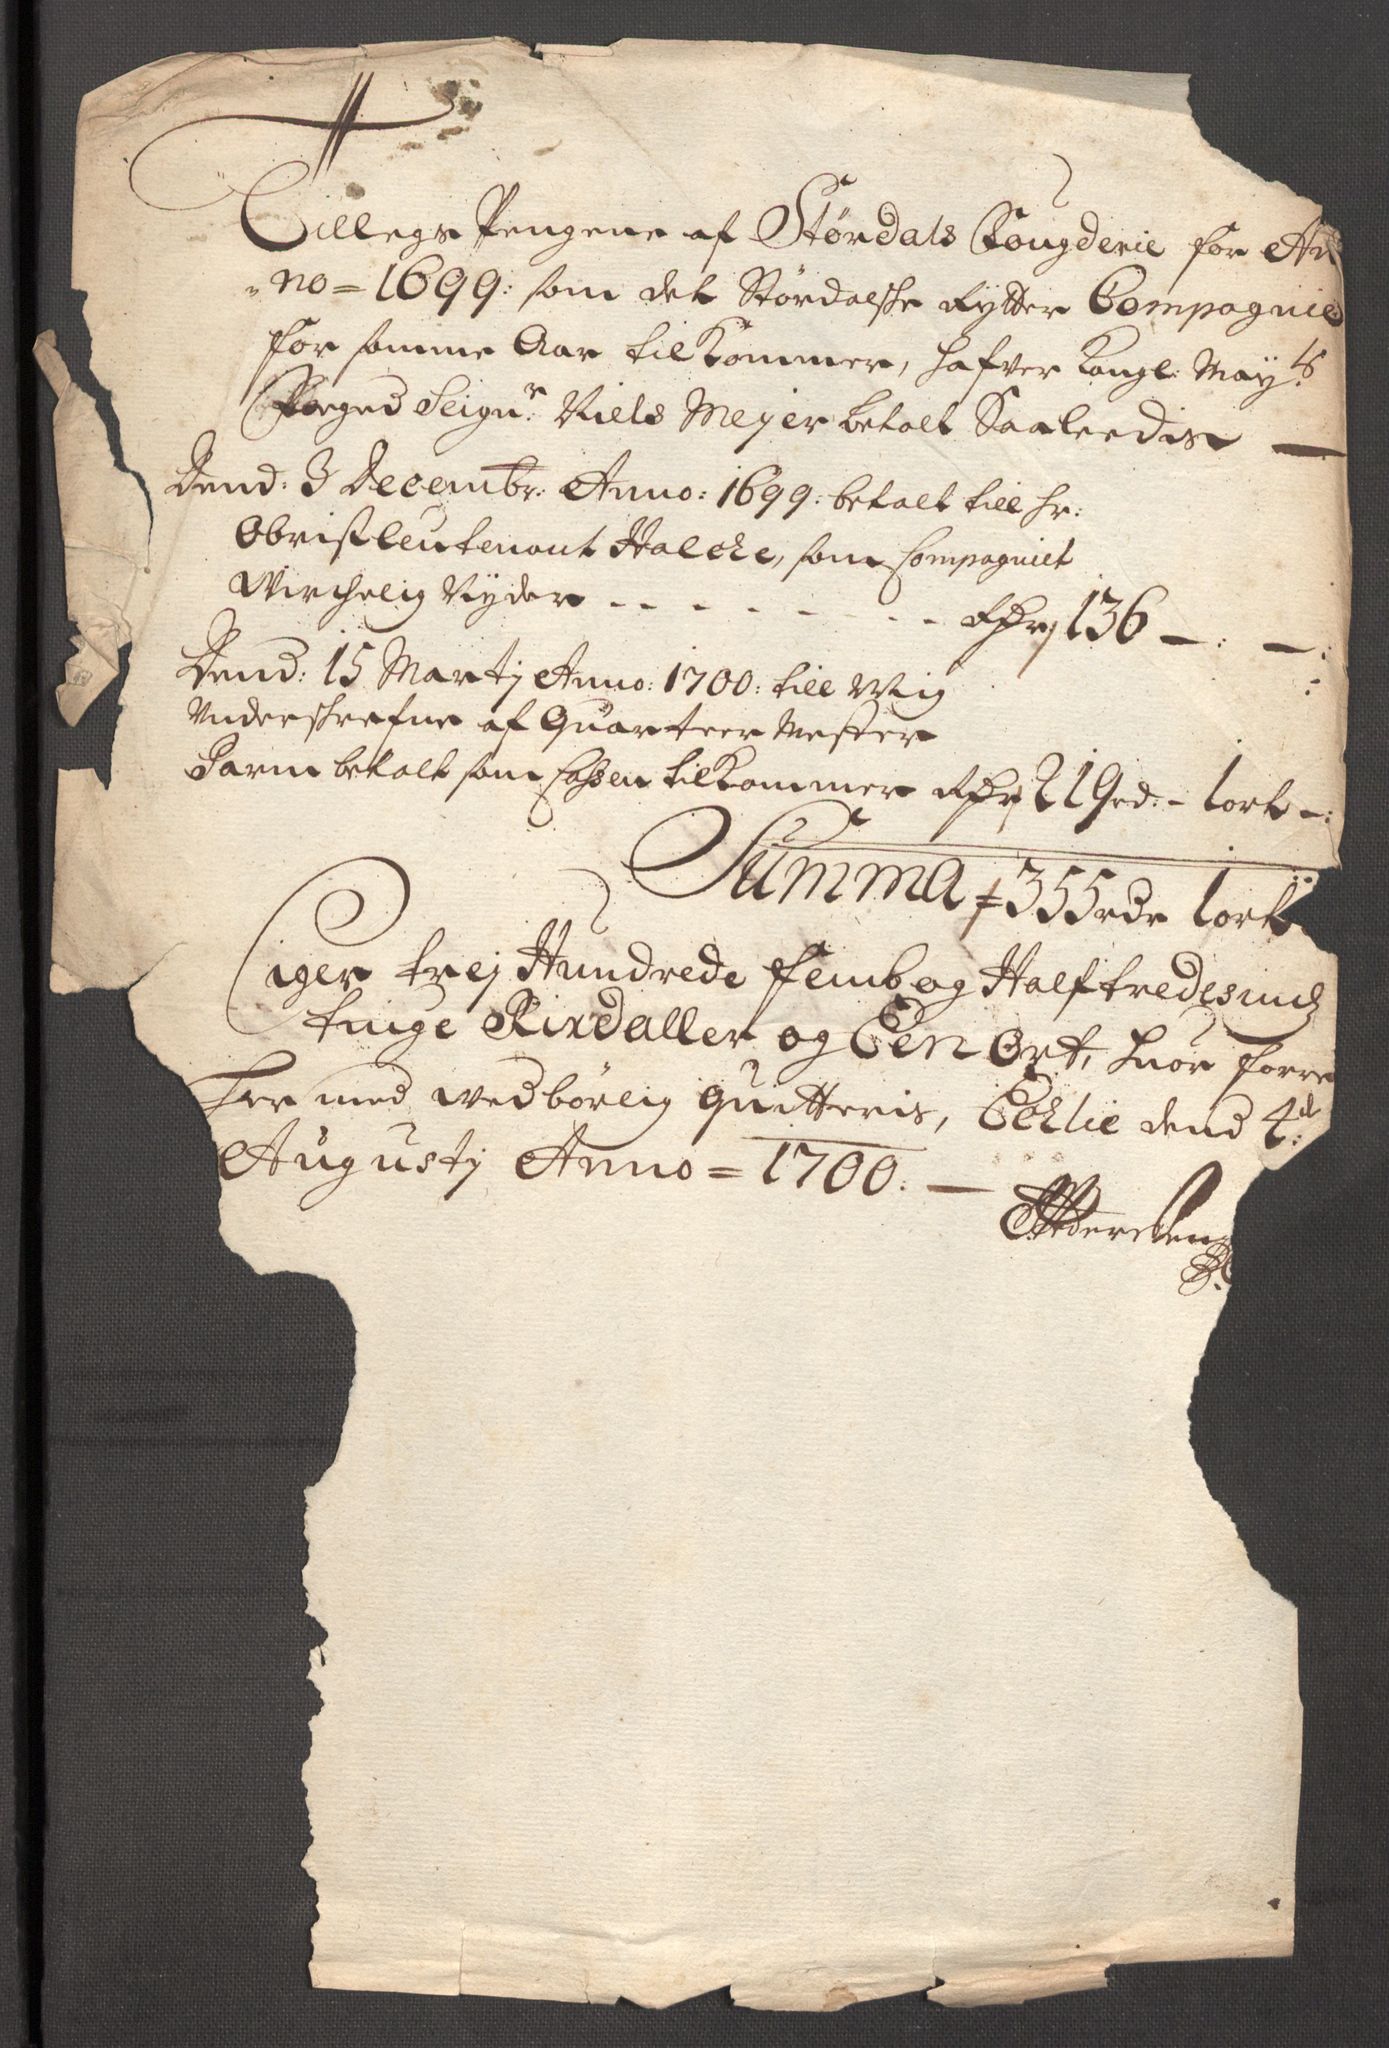 Tillegs Pengene af Størdals Fougderie for An
no = 1699: som det Størdalske Rytter Compagnie
for samme Aar tilkommer, hafver Kongl: Mayts
Foeged Seignr: Niels Mejer betalt Saaleedis
Dend: 3 Decembr: Anno: 1699: betalt till hr:
Obristleutenant Halcke, som Compagniet
Wirchelig Nyder - - - - - - - - Rdr 136 - : - :
Dend: 15 Martj Anno: 1700: till Mig
Underskrefne af Quarteer Mester
Darm betalt som Cassen tilkommer Rdr 219 rd: - 1 ort - :
Summa 355 rdr 1 ort
siger trej Hundrede femb og Halftredesinds
tiuge Rixdaller og Een Ort, huor forre
her med wedbörlig quitteris, Echlie dend 4de:
Augustj Anno = 1700. -